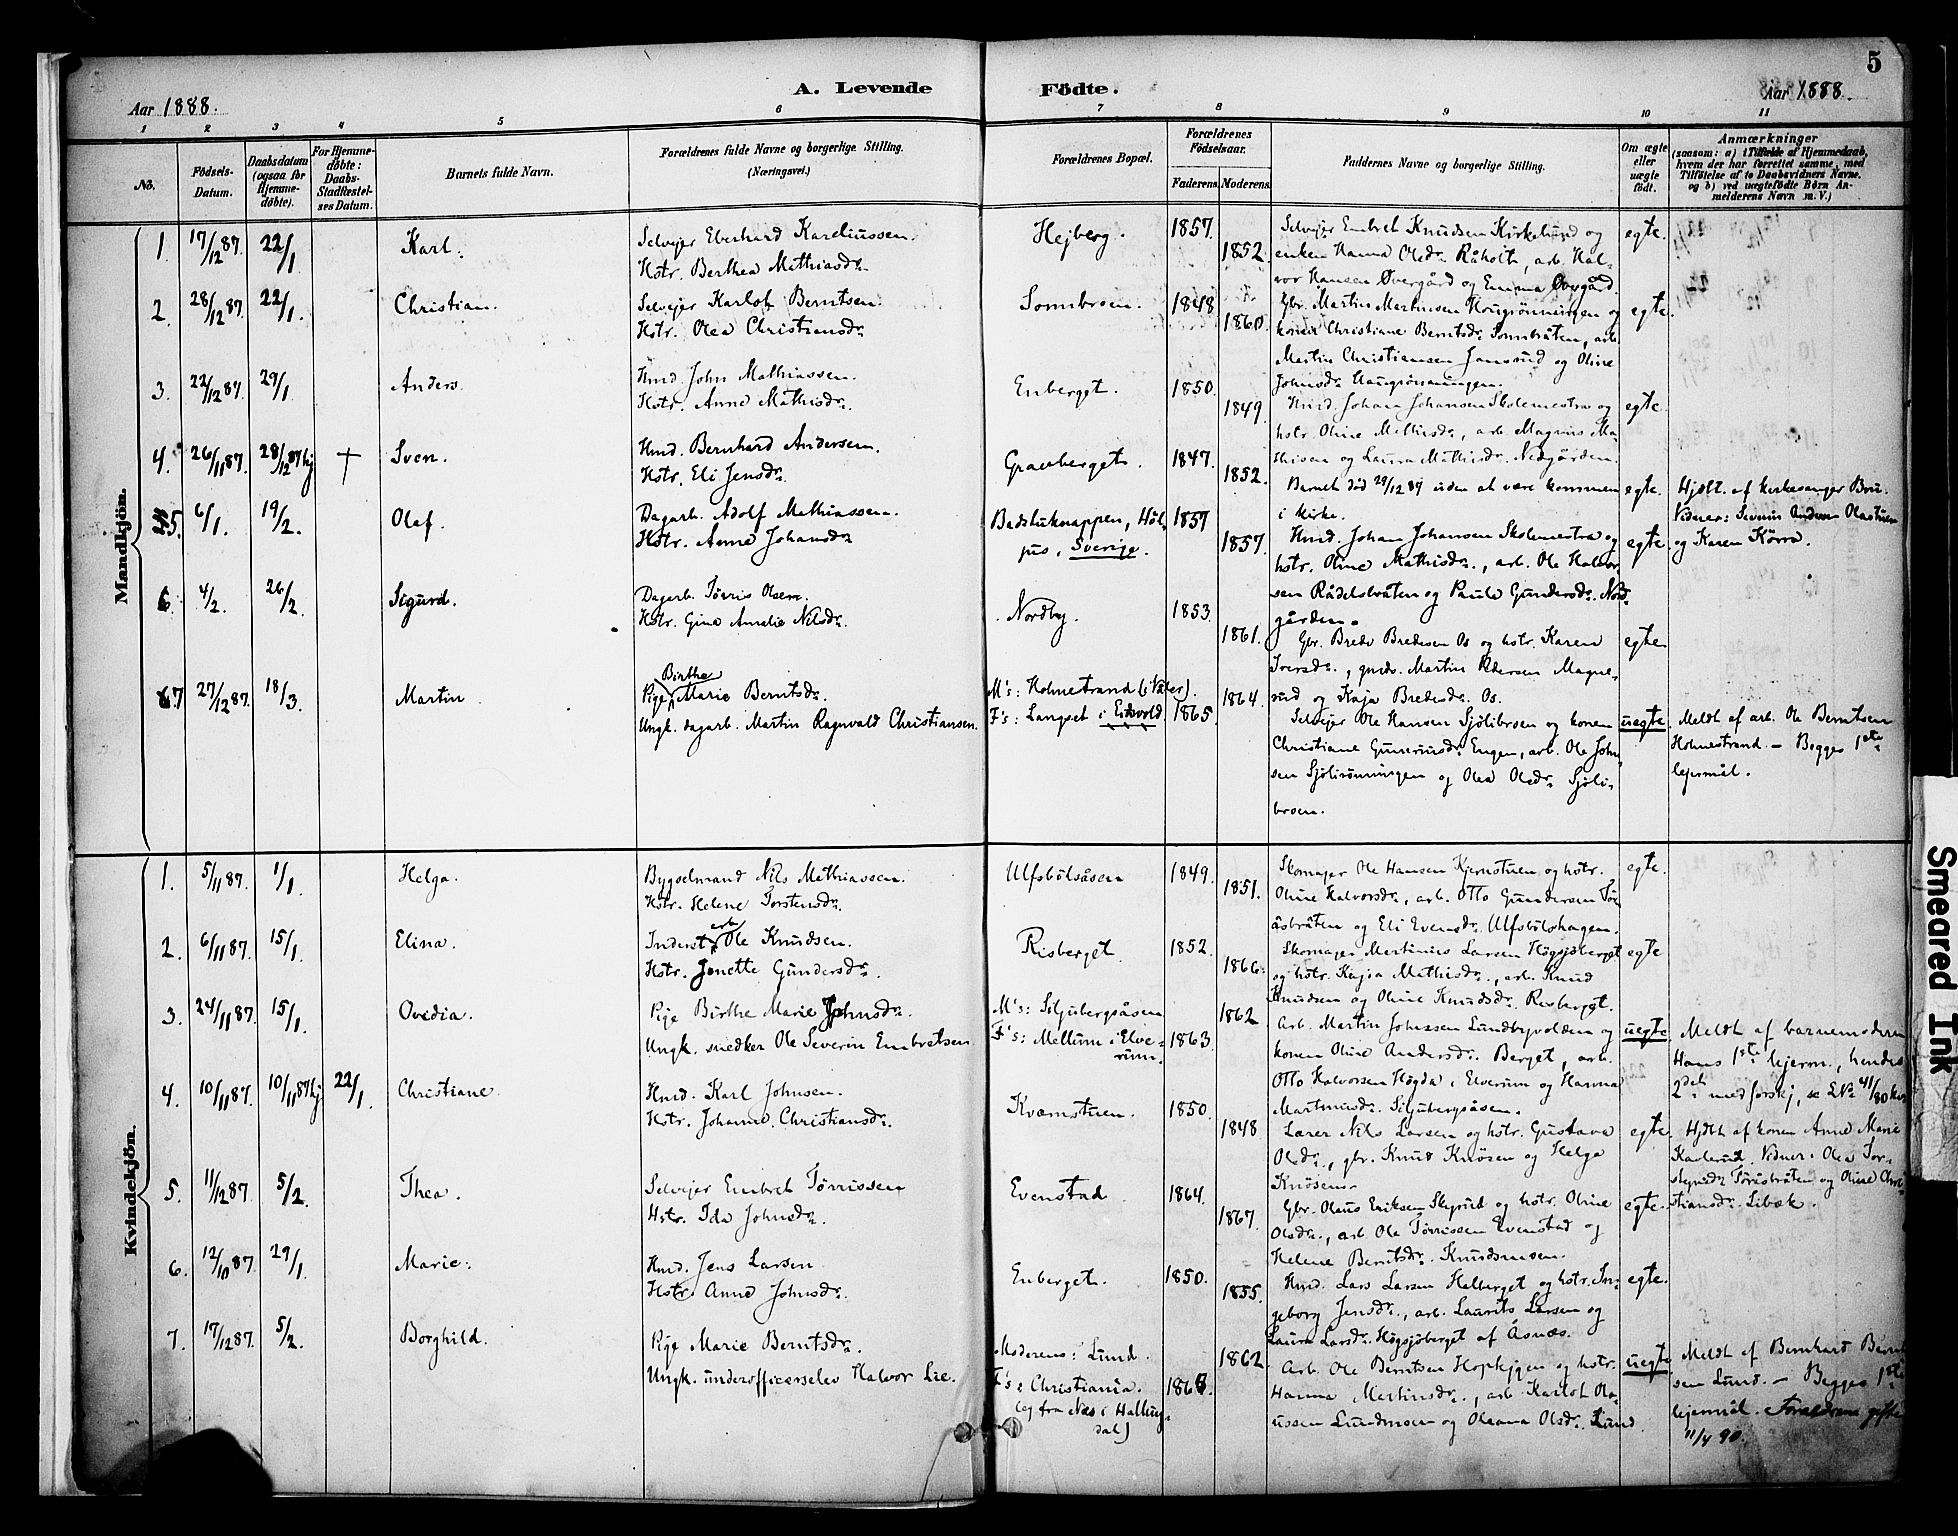 A. Levende Födte.
5
Aar 1888.
Aar 1888.
1 2 3 4 5 6 7 8 9 10 11
No.
Födsels-Datum.
Daabsdatum (ogsaa for Hjemmedöbte).
For Hjemmedöbte: Daabs-Stadfæstelses Datum.
Barnets fulde Navn.
Forældrenes fulde Navne og borgerlige Stilling. (Næringsvei.)
Forældrenes Bopæl.
Forældrenes Födselsaar.
Faderens. Moderens.
Faddernes Navne og borgerlige Stilling.
Om ægte eller uægte födt.
Anmærkninger
(saasom: a) i Tilfælde af Hjemmedaab, hvem der har forrettet samme, med Tilföielse af to Daabsvidners Navne. og b) ved uægtefödte Börn Anmelderens Navn m. V.)
Mandkjön.
1. 17/12 87. 22/1 Karl.
Selvejer Eberhard Kareliussen.
Hstr. Berthea Mathiasdr.
Hejberg. 1857. 1852.
Selvejer Embret Knudsen Kirkelund og
enken Hanna Olsdr. Råholt, arb. Hal-
vor Hansen Øvergård og Emma Øvergård.
egte.
2. 28/12 87. 22/1. Christian.
Selvejer Karlot Berntsen.
Hstr. Olea Christiansdr.
Sombroen. 1848 1860.
Gbr. Martin Martinsen Haugrønningen og
konen Christiane Berntsdr. Sombråten, arb.
Martin Christiansen Jansrud og Oline
Johnsdr. Haugrønningen.
egte.
3. 22/12 87. 29/1. Anders.
Hmd. John Mathiassen.
Hstr. Anne Mathisdr.
Enberget. 1850. 1849
Hmd. Johan Johansen Skolemestra og
hstr. Oline Mathisdr., arb. Magnus Ma-
thisen og Laura Mathisdr. Nedgården.
egte.
4. 26/11 87. 28/12 87 hj † Sven.
Hmd. Bernhard Andersen.
Hstr. Eli Jensdr.
Gravberget. 1847. 1852.
Barnet död 29/12 87 uden at være kommen
i kirke.
egte.
Hjdöbt. af kirkesanger Bru.
Vidner: Severin Andersen Olastuen
og Karen Korra.
5. 6/1. 19/2. Olaf.
Dagarb. Adolf Mathiassen.
Hstr. Anne Johansdr
Badstuknappen, Höl-
jus, Sverige. 1857 1857.
Hmd. Johan Johansen Skolemestra og
hstr. Oline Mathisdr., arb. Ole Halvor-
sen Rådelsbråten og Paula Gundersdr. Nord-
gården.
egte.
6. 4/2. 26/2. Sigurd.
Dagarb. Törris Olsen.
Hstr. Gina Amalie Nilsdr.
Nordby. 1853. 1861.
Gbr. Brede Bredesen Os og hstr. Karen
Iversdr., gmds. Martin Pedersen Magne-
rud og Kaja Bredesdr. Os.
egte
7 27/12 87. 18/3. Martin.
Pige Birthe Marie Berntsdr.
Ungk. dagarb. Martin Ragnvald Christiansen.
M's: Holmestrand (i Våler).
F's: Langset i Eidsvold 1865. 1864.
Selvejer Ole Hansen Sjölibroen og konen
Christiane Gunerusdr. Engen, arb. Ole John-
sen Sjölirönningen og Olea Olsdr. Sjöli-
broen.
uegte.
Meldt af arb. Ole Berntsen
Holmestrand. – Begges 1ste
lejermål.
Kvindekjön.
1. 5/11 87. 1/1. Helga.
Bygselmand Nils Mathiassen.
Hstr. Helene Torstensdr.
Ulfsbölsåsen 1849. 1851.
Skomager Ole Hansen Kjernstuen og hstr.
Oline Halvorsdr., arb. Otto Gundersen Tör-
åsbråten og Eli Evensdr. Ulfsbölshagen.
egte.
2. 6/11 87. 15/1. Elina.
Inderst arb Ole Knudsen.
Hstr. Jonette Gundersdr.
Risberget 1852. 1866.
Skomager Martinius Larsen Högsjöberget
og hstr. Kajsa Mathisdr., arb. Knud
Knudsen og Oline Knudsdr. Risberget.
egte
3. 24/11 87. 15/1. Ovidia.
Pige Birthe Marie Johnsdr.
Ungk. snedker Ole Severin Embretsen
M's: Siljubergsåsen
F's: Mellum i Elve-
rum. 1863. 1862
Arb. Martin Johnssen Lundbyvolden og
konen Oline Andersdr. Berget, arb.
Otto Halvorsen Högda i Elverum og Hanna
Martinusdr. Siljubergsåsen.
uegte
Meldt af barnemoderen
Hans 1ste lejerm., hendes
2det i med forskj, se No 41/80
4. 10/11 87. 10/11 87 hj 22/1. Christiane.
Hmd. Karl Johnsen.
Hstr. Johanne Christiansdr.
Kværnstuen. 1850. 1848
Lærer Nils Larsen og hstr. Gustava
Olsdr., gbr. Knut Knösen og Helga
Knösen.
egte.
Hjdöbt af konen Anne Marie
Karlerud. Vidner: Olea Tor-
stensdr. Törisbråten og Oline Chri-
stiansdr. Libæk.
5. 11/12 87. 5/2. Thea.
Selvejer Embret Törrissen
Hstr. Ida Johnsdr.
Evenstad. 1864. 1867.
Gbr. Olaus Eriksen Skyrud og hstr. Oline
Olsdr., arb. Ole Törrissen Evenstad og
Helene Berntsdr. Knudsmoen.
egte.
6. 12/10 87. 29/1. Marie.
Hmd. Jens Larsen.
Hstr. Anne Johnsdr.
Enberget. 1850. 1855.
Hmd. Lars Larsen Halberget og hstr. In-
geborg Jensdr., arb. Laurits Larsen og
Laura Larsdr. Högsjöberget af Åsnes.
egte.
7. 17/12 87. 5/2. Borghild.
Pige Marie Berntsdr.
Ungk. underofficerselev Halvor Lie.
Moderens: Lund.
F's: Christiania.
(og fra Næs i Halling-
dal) 1868. 1862.
Arb. Ole Berntsen Hopkjgen og hstr.
Hanna Martinsdr., arb. Karlot Ola-
ussen Lundmoen og Oleana Olsdr. Lund
uegte
Meldt af Bernhard Bernt-
sen Lund. – Begges 1ste
lejermål. Forældrene gifte
11/4 90.
Smeared Ink